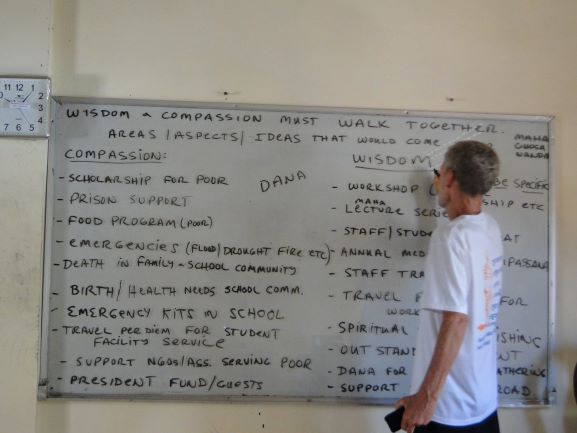 WISDOM & COMPASSION MUST WALK TOGETHER.
AREAS/ASPECTS/ IDEAS THAT WOULD COME
MAHA
GHOSA
NANDA
COMPASSION:
- SCHOLARSHIP FOR POOR
DANA
- PRISON SUPPORT
- FOOD PROGRAM (POOR)
- EMERGENCIES (FLOOD/DROUGHT FIRE ETC)
- DEATH IN FAMILY & SCHOOL COMMUNITY
- BIRTH/HEALTH NEEDS SCHOOL COMM.
- EMERGENCY KITS IN SCHOOL
- TRAVEL PER DIEM FOR STUDENT
FACILITY SERVICE
- SUPPORT NGOS/ASS. SERVING POOR
- PRESIDENT FUND/GUESTS
WISDOM
- WORKSHOP ( BE SPECIFIC
SHIP ETC
MAHA
- LECTURE SERIE
- STAFF/STUD AT
- ANNUAL MED IPASSANA
- STAFF TRA
- TRAVEL FOR
WORK
- SPIRITUAL ISHING
- OUT STAND NT
- DANA FOR ATHERING
- SUPPORT ROAD
11 12 1
2
3
4
7 6 5